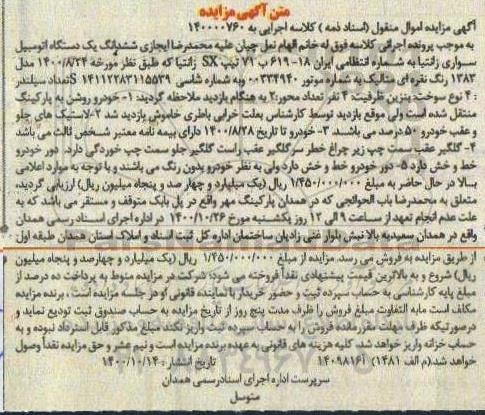 متن آگهی مزایده
آگهی مزایده اموال منقول (اسناد ذمه) کلاسه اجرایی به ۱۴۰۰۰۰۷۶۰
به موجب پرونده اجرائی کلاسه فوق له خانم الهام نعل چیان علیه محمدرضا ایجازی ششدانگ یک دستگاه اتومبیل
سواری زانتیا به شماره انتظامی ایران ۱۸-۶۱۹ ب ۷۱ تیپ SX زانتیا که طبق نظر مورخه ۱۴۰۰/۸/۲۴ مدل
۱۳۸۳ رنگ نقره ای متالیک به شماره موتور ۰۰۳۳۴۹۴۰ وبه شماره شاسی S۱۴۱۱۲۲۸۳۱۱۵۵۳۹ تعداد سیلندر
: ۴ نوع سوخت: بنزین ظرفیت: ۴ نفر تعداد محور:۲ به هنگام بازدید ملاحظه گردید: ۱- خودرو روشن به پارکینگ
منتقل شده است ولی موقع بازدید توسط کارشناس بعلت خرابی باطری خاموش بازدید شد ۲-لاستیک های جلو
و عقب خودرو ۵۰ درصد می باشند. ۳- خودرو تا تاریخ ۱۴۰۰/۸/۲۸ دارای بیمه نامه معتبر شخص ثالث می باشد
۴- گلگیر عقب سمت چپ زیر چراغ خطر سرگلگیر عقب راست گلگیر جلو سمت چپ خوردگی دارد. دور خودرو
خط و خش دارد ۵- دور خودرو خط و خش دارد ولی به نظر خودرو بدون رنگ می باشند و با توجه به موارد اعلامی
بالا در حال حاضر به مبلغ ۱/۴۵۰/۰۰۰/۰۰۰ ریال (یک میلیارد و چهار صد و پنجاه میلیون ریال) ارزیابی گردید.
متعلق به محمدرضا باب الحوائجی که در همدان پارکینگ مهر واقع در پل بابک متوقف و مستقر می باشد که به
علت عدم انجام تعهد از ساعت ۹ الی ۱۲ روز یکشنبه مورخ ۱۴۰۰/۱۰/۲۶ در اداره اجرای اسناد رسمی همدان
واقع در همدان سعیدیه بالا نبش بلوار غنی زادیان ساختمان اداره کل ثبت اسناد و املاک استان همدان طبقه اول
از طریق مزایده به فروش می رسد. مزایده از مبلغ ۱/۴۵۰/۰۰۰/۰۰۰ ریال (یک میلیارد و چهارصد و پنجاه میلیون
ریال) شروع و به بالاترین قیمت پیشنهادی نقداً فروخته می شود؛ شرکت در مزایده منوط به پرداخت ده درصد از
مبلغ پایه کارشناسی به حساب سپرده ثبت و حضور خریدار یا نماینده قانونی او در جلسه مزایده است، برنده مزایده
مکلف است مابه التفاوت مبلغ فروش را ظرف مدت پنج روز از تاریخ مزایده به حساب صندوق ثبت تودیع نماید و
در صورتیکه ظرف مهلت مقرر مانده فروش را به حساب سپرده ثبت واریز نکند مبلغ مذکور قابل استرداد نبوده و به
حساب خزانه واریز خواهد شد. کلیه هزینه های قانونی به عهده برنده مزایده است و نیم عشر و حق مزایده نقداً وصول
خواهد شد.(م الف ۱۴۸۱) ۱۴۰۹۸۱۶آ تاریخ انتشار : ۱۴۰۰/۱۰/۱۴
سرپرست اداره اجرای اسناد رسمی همدان
متوسل